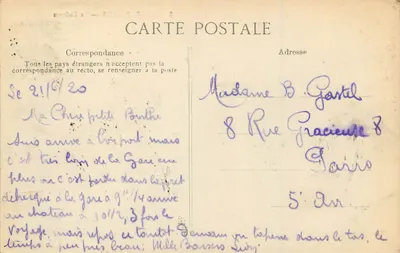 CARTE POSTALE
Correspondance
Tous les pays étrangers n'acceptent pas la
correspondance au recto, se renseigner à la poste
Adresse
Le 21/6/20
Ma Chère petite Berthe
Suis arrivé à bon port mais
c'est très loin de la Gare, en
plus on c'est perdu dans
à la gare à 9h 1/4 arrivé
au château à 10h 1/2, 3 fois le
voyage, mais repos ce tantôt Demain on tapera dans le tas, le
temps à peu près beau, Mille Baisers
Madame B. Gastel
8 Rue Gracieuse 8
Paris
5e Arr